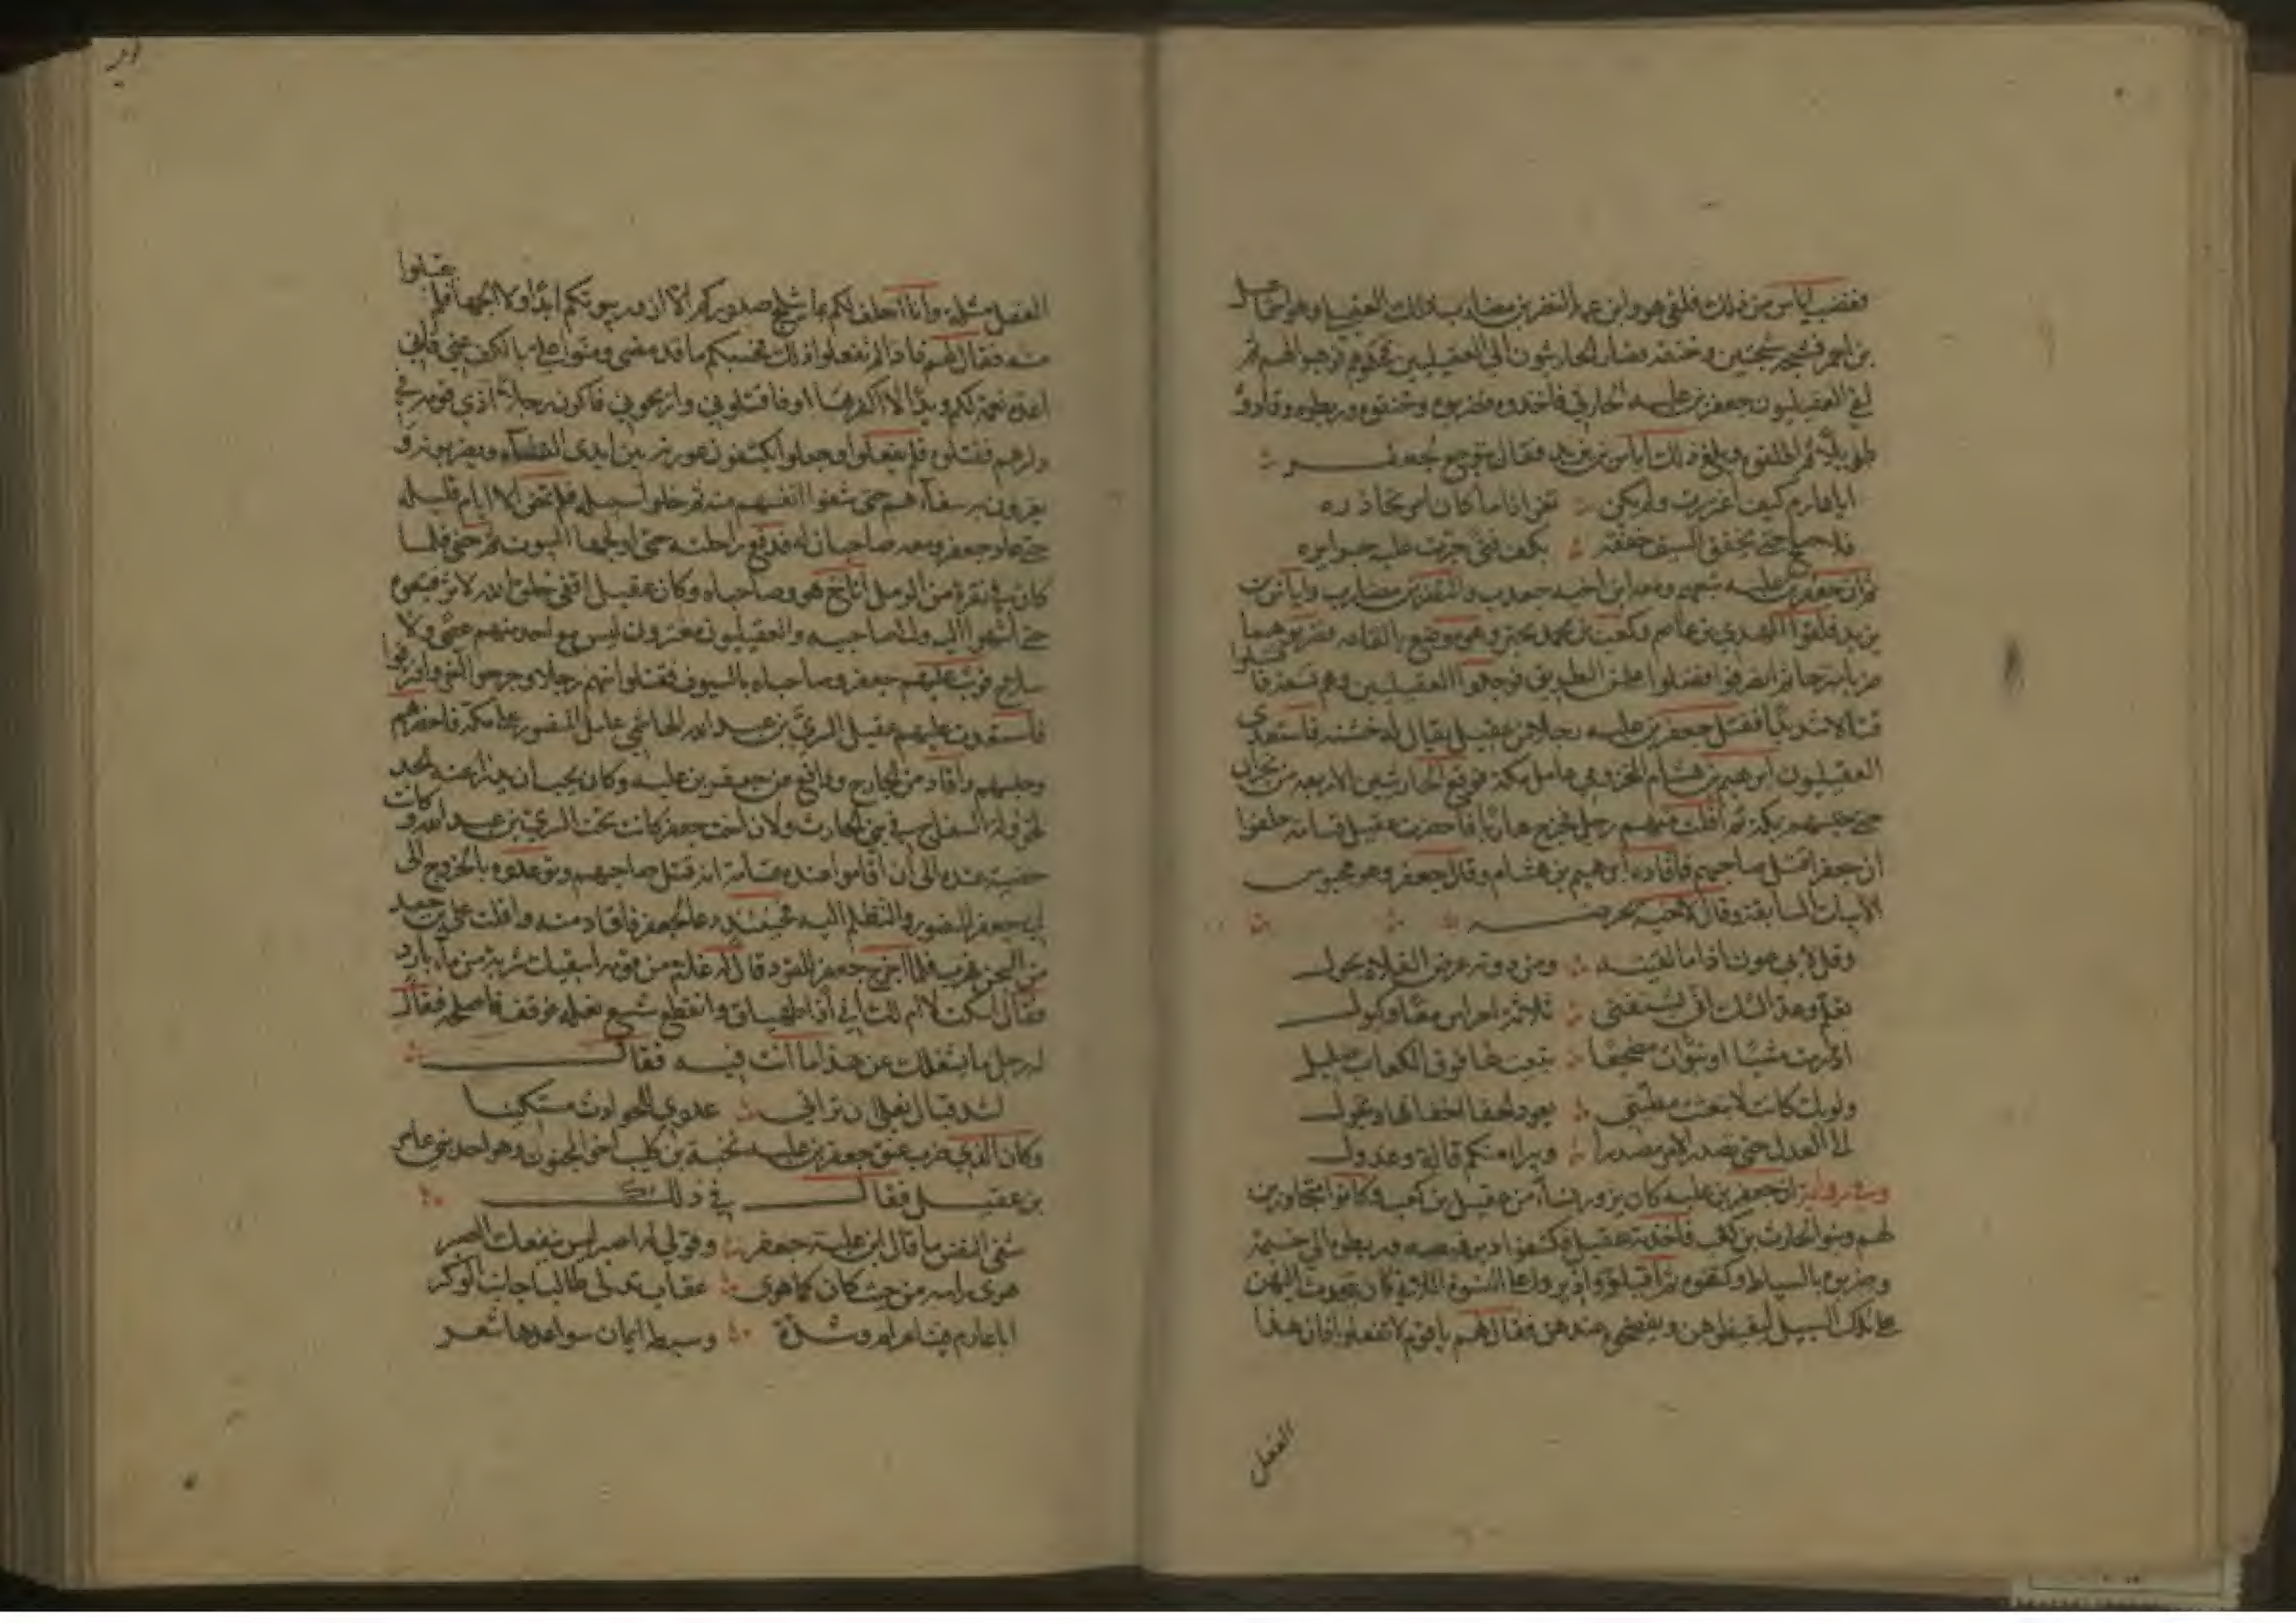 فغضب اياس من ذلك فلقي هو وابن عمه النضر بن مضارب ذلك العقيلي وهو اسماعيل
بن احمر فشجه شجتين وخنقه فصار الحارثيون الى العقيليين فحكموهم فوهبوا لهم ثم
لقي العقيليون جعفر بن علبه الحارثي فاخذوه فضربوه وخنقوه وربطوه وقادوه
طويلا ثم اطلقوه وبلغ ذلك اياس بن يزيد فقال يتوجع لجعفر
ابا عارم كيف اغتررت ولم تكن تغر اذا ما كان امر تحاذره
فلا صلح حتى يخفق السيف خفقة بكف فتى جرت عليه جرايره
ثم ان جعفر بن علبه تبعهم ومعه ابن اخيه جعدب والنضر بن مضارب واياس بن
يزيد فلقوا المهدي بن عاصم وكعب بن محمد بحبر وهو موضع بالقاعه فضربوهما
ضربا مبرحا ثم انصرفوا فضلوا عن الطريق فوجدوا العقيليين وهم تسعة فاقتتلوا
قتالا شديدا فقتل جعفر بن علبه رجلا من عقيل يقال له خشينه فاستعدى
العقيليون ابرهيم بن هشام المخزومي عامل مكة فرفع الحارثيين الاربعه من نجران
حتى حبسهم بمكة ثم افلت منهم رجل فخرج هاربا فاحضرت عقيل قسامة حلفوا
ان جعفرا قتل صاحبهم فاقاده ابرهيم بن هشام وقال جعفر وهو محبوس
الابيات السابقة وقال لاخيه يحرضه
وقل لابي عون اذا ما لقيته ومن دونه عرض الفلاة يحول
تعلم وعد الشك اني يشفني ثلاثة احراس معا وكبول
اذا رمت مشيا او تبوأت مضجعا يبيت لها فوق الكعاب صليل
ولو بك كانت لابتعثت مطيتي يعود الحفا اخفافها وتجول
الى العدل حتى يصدر الامر مصدرا ويبرا منكم قالة وعدول
وفي رواية ان جعفر بن علبه كان يزور نساء من عقيل بن كعب وكانوا متجاورين
لهم وبنو الحارث بن كعب فاخذته عقيل فكشفوا دبر قميصه وربطوه الى خيمة
وضربوه بالسياط وكتفوه ثم اقبلوا وادبروا به على النسوة اللاتي كان يتحدث اليهن
على تلك السبيل ليغيظوهن ويفضحوه عندهن فقال لهم يا قوم لا تفعلوا فان هذا
الفعل
الفعل مثلة وانا احلف لكم بما يثلج صدوركم الا ازور بيوتكم ابدا ولا الجها فلم يقبلوا
منه فقال لهم فاذا لم تفعلوا ذلك فحسبكم ما قد مضى ومنوا علي بالكف عني فاني
اعده نعمة لكم ويدا لا اكفرها ابدا او فاقتلوني واريحوني فاكون رجلا اذى قومه في
دارهم فقتلوه فلم يفعلوا وجعلوا يكشفون عورته بين ايدي النساء ويضربونه و
يغرون به سفهاءهم حتى شفوا انفسهم منه ثم خلوا سبيله فلم تمض الا ايام قليلة
حتى عاد جعفر ومعه صاحبان له فدفع راحلته حتى اولجها البيوت ثم مضى فلما
كان في نقرة من الرمل اناخ هو وصاحباه وكان عقيل اقفى خلق الله لاثر فتبعوه
حتى انتهوا اليه والى صاحبيه والعقيليون مغترون ليس مع احد منهم عصى ولا
سلاح فوثب عليهم جعفر وصاحباه بالسيوف فقتلوا منهم رجلا وجرحوا اخر وافترقوا
فاستعدت عليهم عقيل السري بن عبد الله الهاشمي عامل المنصور على مكة فاحضرهم
وحبسهم واقاد من الجارح ودافع عن جعفر بن علبه وكان يحب ان يدرأ عنه الحد
لخؤولة السفاح في بني الحارث ولان اخت جعفر كانت تحت السري بن عبد الله وكانت
حظية عنده الى ان اقاموا عنده قسامة انه قتل صاحبهم وتوعدوه بالخروج الى
ابي جعفر المنصور والتظلم اليه فحينئذ دعا بجعفر فاقاد منه وافلت علي بن جعدب
من السجن فهرب فلما اخرج جعفر للقود قال له غلام من قومه اسقيك شربة من ماء بارد
فقال اسكت لا ام لك اني اذا لمهياف وانقطع شسع نعله فوقف فاصلحه فقال
له رجل ما يشغلك عن هذا ما انت فيه فقال
اشد قبال نعلي ان يراني عدوي للحوادث مستكينا
وكان الذي ضرب عنق جعفر بن علبه نخبة بن كليب اخي المجنون وهو احد بني عامر
بن عقيل فقال في ذلك
شفى النفس ما قال ابن علبة جعفر وقولي له اصبر ليس ينفعك الصبر
هوى راسه من حيث كان كما هوى عقاب تدلى طالبا جانب الوكر
ابا عارم فينا عرام وشدة وبسطة ايمان سواعدها شعر